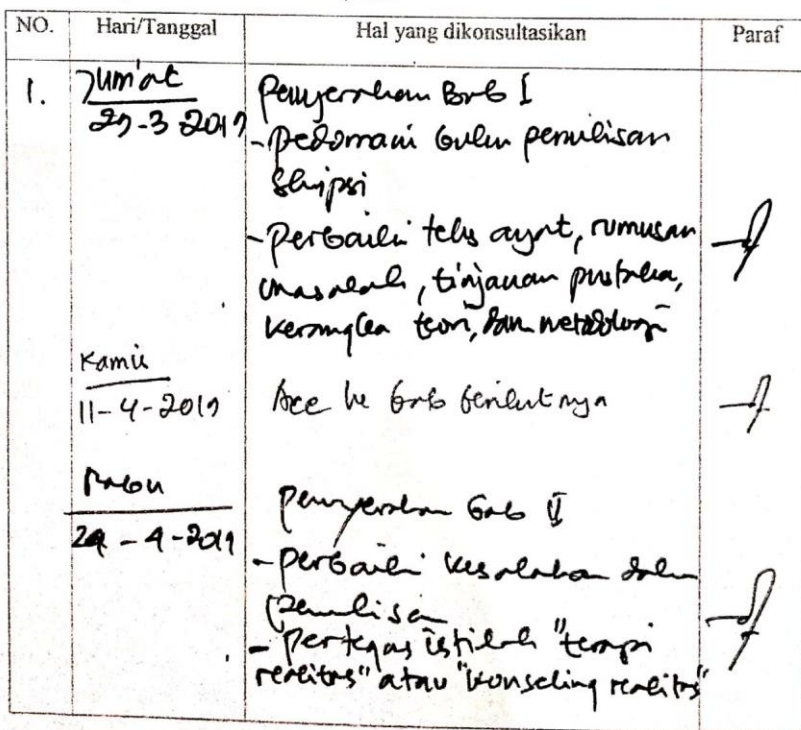 NO. Hari/Tanggal Hal yang dikonsultasikan Paraf
1. Jum'at Penyerahan Bab I
29-3-2019 - Pedomani buku penulisan
Skripsi
- Perbaiki teks ayat, rumusan
masalah, tinjauan pustaka,
kerangka teori, dan metodologi
Kamis
11-4-2019 Acc ke bab berikutnya
Rabu Penyerahan bab II
24-4-2019
- perbaiki kesalahan dalam
penulisan
- Pertegas istilah "terapi
realitas" atau "konseling realitas"